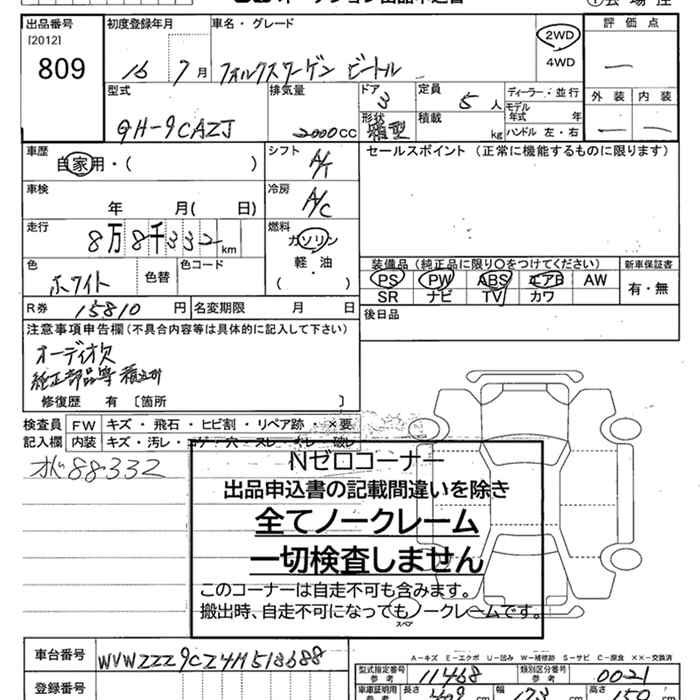 出品番号 初度登録年月 車名・グレード 評価点
[2012]
809 16 7月 フォルクスワーゲン ビートル 2WD 4WD
型式 排気量 ドア 定員 ディーラー・並行 外装 内装
GH-9CAZJ 2000CC 3 5人 モデル年式 年
形状 箱型 積載 kg ハンドル 左・右
車歴 シフト セールスポイント (正常に機能するものに限ります)
自家用・( ) A/T
車検 冷房
年 月( 日) A/C
走行 燃料
8万8千332km ガソリン
軽・油
( )
色 色替 色コード 装備品(純正品に限り○をつけてください) 新車保証書
ホワイト PS PW ABS エアB AW 有・無
SR ナビ TV カワ
R券 15810円 名変期限 月 日 後日品
注意事項申告欄(不具合内容等は具体的に記入して下さい)
オーディオ欠
純正部品等
修復歴 有 〔箇所 〕
検査員 FW キズ・飛石・ヒビ割・リペア跡・×要
記入欄 内装 キズ・汚レ・コゲ・穴・スレ・
88332
Nゼロコーナー
出品申込書の記載間違いを除き
全てノークレーム
一切検査しません
このコーナーは自走不可も含みます。
搬出時、自走不可になってもノークレームです。
スペア
A-キズ E-エクボ U-凹み W-補修跡 S-サビ C-腐食 ××-交換済
車台番号 WVWZZZ9CZ4M518688 型式指定番号 参考 11468 類別区分番号 参考 0021
登録番号 車庫証明用 参考 長さ cm 幅 173 cm 高さ 150 cm